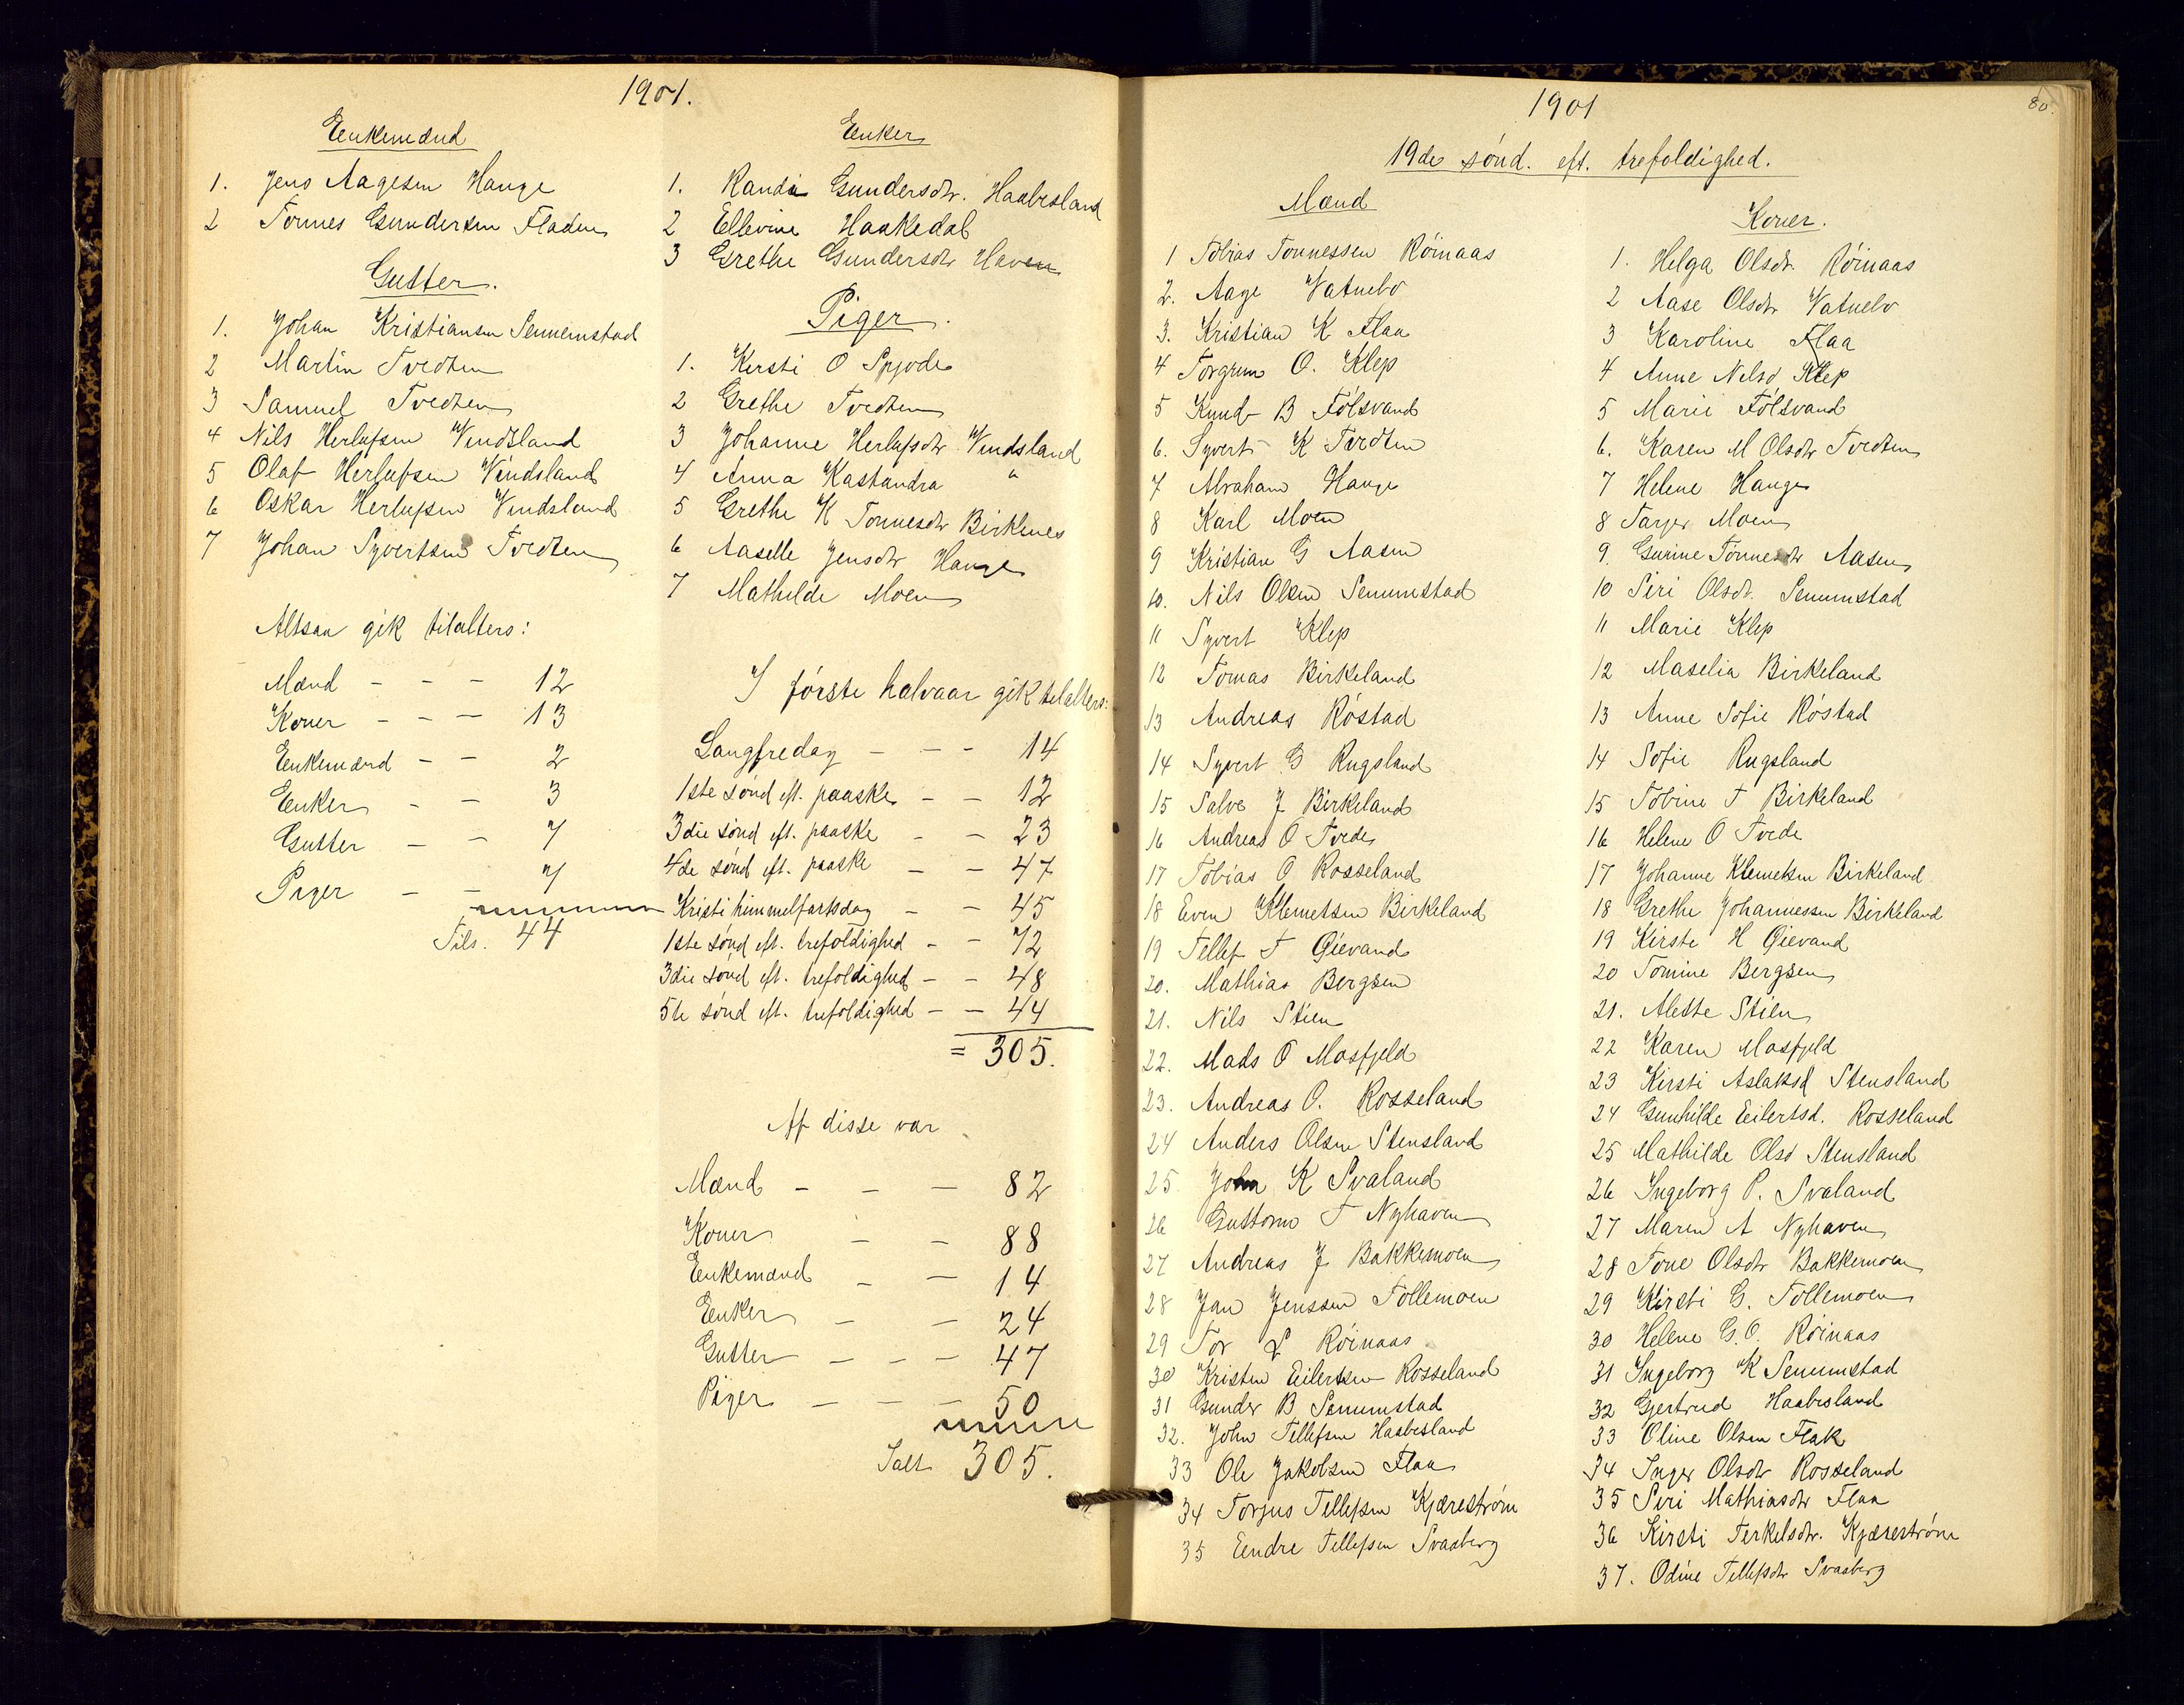 1901.
Enkemænd
1. Jens Aagesen Hauge
2 Tønnes Gundersen Fladen
Gutter.
1. Johan Kristiansen Senumstad
2 Martin Tvedten
3 Samuel Tvedten
4 Nils Herlufsen Vindsland
5 Olaf Herlufsen Vindsland
6 Oskar Herlufsen Vindsland
7 Johan Syvertsen Tvedten
Altsaa gik tilalters:
Mænd - - - 12
Koner - - - 13
Enkemænd - - 2
Enker - - 3
Gutter - - 7
Piger - - 7
Tils. 44
Enker
1. Randi Gundersdtr. Haabesland
2 Ellevine Haakedal
3 Grethe Gundersdtr Haven
Piger.
1. Kersti O Spjode
2 Grethe Tvedten
3 Johanne Herlufsdtr Vindsland
4 Anna Kastandra "
5 Grethe K Tonnesdtr Birkenes
6 Aaselle Jensdtr Hauge
7 Mathilde Moen
I første halvaar gik tilalters:
Langfredag - - - 14
1ste sønd eft. paaske - - 12
3die sønd eft. paaske - - 23
4de sønd eft. paaske - - 47
Kristi himmelfartsdag - - 45
1ste sønd eft. trefoldighed - - 72
3die sønd eft. trefoldighed - - 48
5te sønd eft. trefoldighed - - 44
= 305.
Af disse var
Mænd - - - 82
Koner - - 88
Enkemænd - - 14
Enker - - 24
Gutter - - - 47
Piger - - - 50
Ialt 305.
1901
80.
19de sønd. eft. trefoldighed.
Mænd
1 Tobias Tonnessen Röinaas
2. Aage Vatnebo
3. Kristian K Flaa
4 Torgrim O. Klep
5 Knud B Fölsvand
6. Syvert K Tvedten
7 Abraham Hauge
8 Karl Moen
9 Kristian G Aasen
10. Nils Olsen Senumstad
11 Syvert Klep
12 Tomas Birkeland
13 Andreas Röstad
14 Syvert G Rugsland
15 Salve J Birkeland
16 Andreas O Tvede
17 Tobias O Rosseland
18 Even Klemetsen Birkeland
19 Tellef T Gievand
20. Mathias Bergsen
21. Nils Stien
22. Mads O Mosfjeld
23. Andreas O. Rosseland
24 Anders Olsen Stensland
25. John K Svaland
26 Guttorm T Nyhaven
27 Andreas J Bakkemoen
28 Jan Jenssen Tollemoen
29 Tor L Röinaas
30 Kristen Eilertsen Rosseland
31 Gunder B Senumstad
32. John Tellefsen Haabesland
33 Ole Jakobsen Flaa
34 Torjus Tellefsen Kjæreström
35 Endre Tellefsen Svaaberg
Koner.
1. Helga Olsdtr. Röinaas
2 Aase Olsdtr Vatnebo
3 Karoline Flaa
4 Anne Nilsd Klep
5 Marie Fölsvand
6. Karen M Olsdtr Tvedten
7 Helene Hauge
8 Tarjer Moen
9. Gurine Tonnesdtr Aasen
10 Siri Olsdt. Senumstad
11 Marie Klep
12 Maselia Birkeland
13 Anne Sofie Röstad
14 Sofie Rugsland
15 Tobine T Birkeland
16 Helene O Tvede
17 Johanne Klemetsen Birkeland
18 Grethe Johannessen Birkeland
19 Kirste H Gievand
20 Tomine Bergsen
21. Alette Stien
22 Karen Mosfjeld
23 Kirsti Aslaksd Stensland
24 Gunhilde Eilertsd. Rosseland
25 Mathilde Olsd Stensland
26 Ingeborg P. Svaland
27 Maren A Nyhaven
28 Tone Olsdtr Bakkemoen
29 Kirsti G. Tollemoen
30 Helene G.O. Röinaas
31 Ingeborg K Senumstad
32 Gjertrud Haabesland
33 Oline Olsen Flak
34 Inger Olsdtr Rosseland
35 Siri Mathiasdtr Flaa
36 Kirsti Terkelsdtr. Kjæreström
37. Odine Tellefsdtr Svaaberg